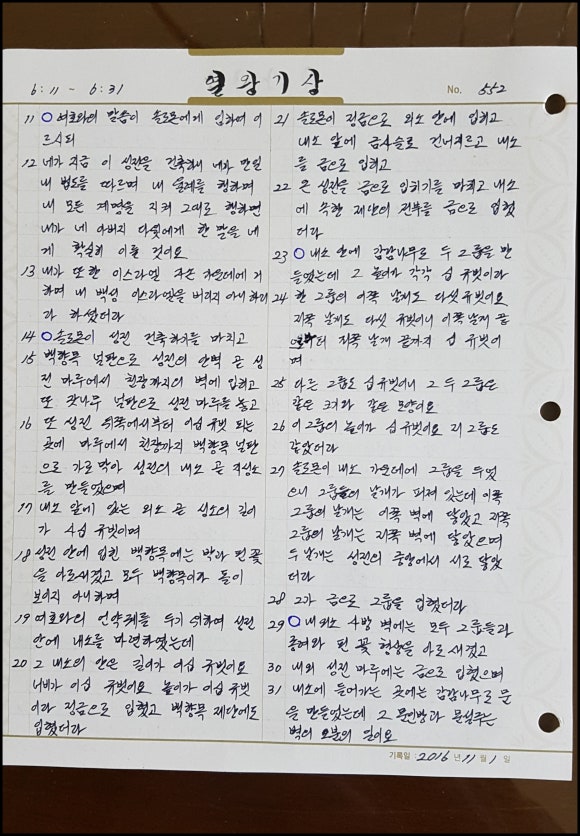 6:11 ~ 6:31
열왕기상
No. 552
11 여호와의 말씀이 솔로몬에게 임하여 이
르시되
12 네가 지금 이 성전을 건축하니 네가 만일
내 법도를 따르며 내 율례를 행하며
내 모든 계명을 지켜 그대로 행하면
내가 네 아버지 다윗에게 한 말을 네
게 확실히 이룰 것이요
13 내가 또한 이스라엘 자손 가운데에 거
하며 내 백성 이스라엘을 버리지 아니하리
라 하셨더라
14 솔로몬이 성전 건축하기를 마치고
15 백향목 널판으로 성전의 안벽 곧 성
전 마루에서 천장까지의 벽에 입히고
또 잣나무 널판으로 성전 마루를 놓고
16 또 성전 뒤쪽에서부터 이십 규빗 되는
곳에 마루에서 천장까지 백향목 널판
으로 가로막아 성전의 내소 곧 지성소
를 만들었으며
17 내소 앞에 있는 외소 곧 성소의 길이
가 4십 규빗이며
18 성전 안에 입힌 백향목에는 박과 핀 꽃
을 아로새겼고 모두 백향목이라 돌이
보이지 아니하며
19 여호와의 언약궤를 두기 위하여 성전
안에 내소를 마련하였는데
20 그 내소의 안은 길이가 이십 규빗이요
너비가 이십 규빗이요 높이가 이십 규빗
이라 정금으로 입혔고 백향목 제단에도
입혔더라
21 솔로몬이 정금으로 외소 안에 입히고
내소 앞에 금4슬로 건너지르고 내소
를 금으로 입히고
22 온 성전을 금으로 입히기를 마치고 내소
에 속한 제단의 전부를 금으로 입혔
더라
23 내소 안에 감람나무로 두 그룹을 만
들었는데 그 높이가 각각 십 규빗이라
24 한 그룹의 이쪽 날개도 다섯 규빗이요
저쪽 날개도 다섯 규빗이니 이쪽 날개 끝
으로부터 저쪽 날개 끝까지 십 규빗이
며
25 다른 그룹도 십 규빗이니 그 두 그룹은
같은 크기와 같은 모양이요
26 이 그룹의 높이가 십 규빗이요 저 그룹도
같았더라
27 솔로몬이 내소 가운데에 그룹을 두었
으니 그룹들의 날개가 퍼져 있는데 이쪽
그룹의 날개는 이쪽 벽에 닿았고 저쪽
그룹의 날개는 저쪽 벽에 닿았으며
두 날개는 성전의 중앙에서 서로 닿았
더라
28 그가 금으로 그룹을 입혔더라
29 내외소 4방 벽에는 모두 그룹들과
종려와 핀 꽃 형상을 아로새겼고
30 내외 성전 마루에는 금으로 입혔으며
31 내소에 들어가는 곳에는 감람나무로 문
을 만들었는데 그 문인방과 문설주는
벽의 오분의 일이요
기록일 : 2016 년 11 월 1 일